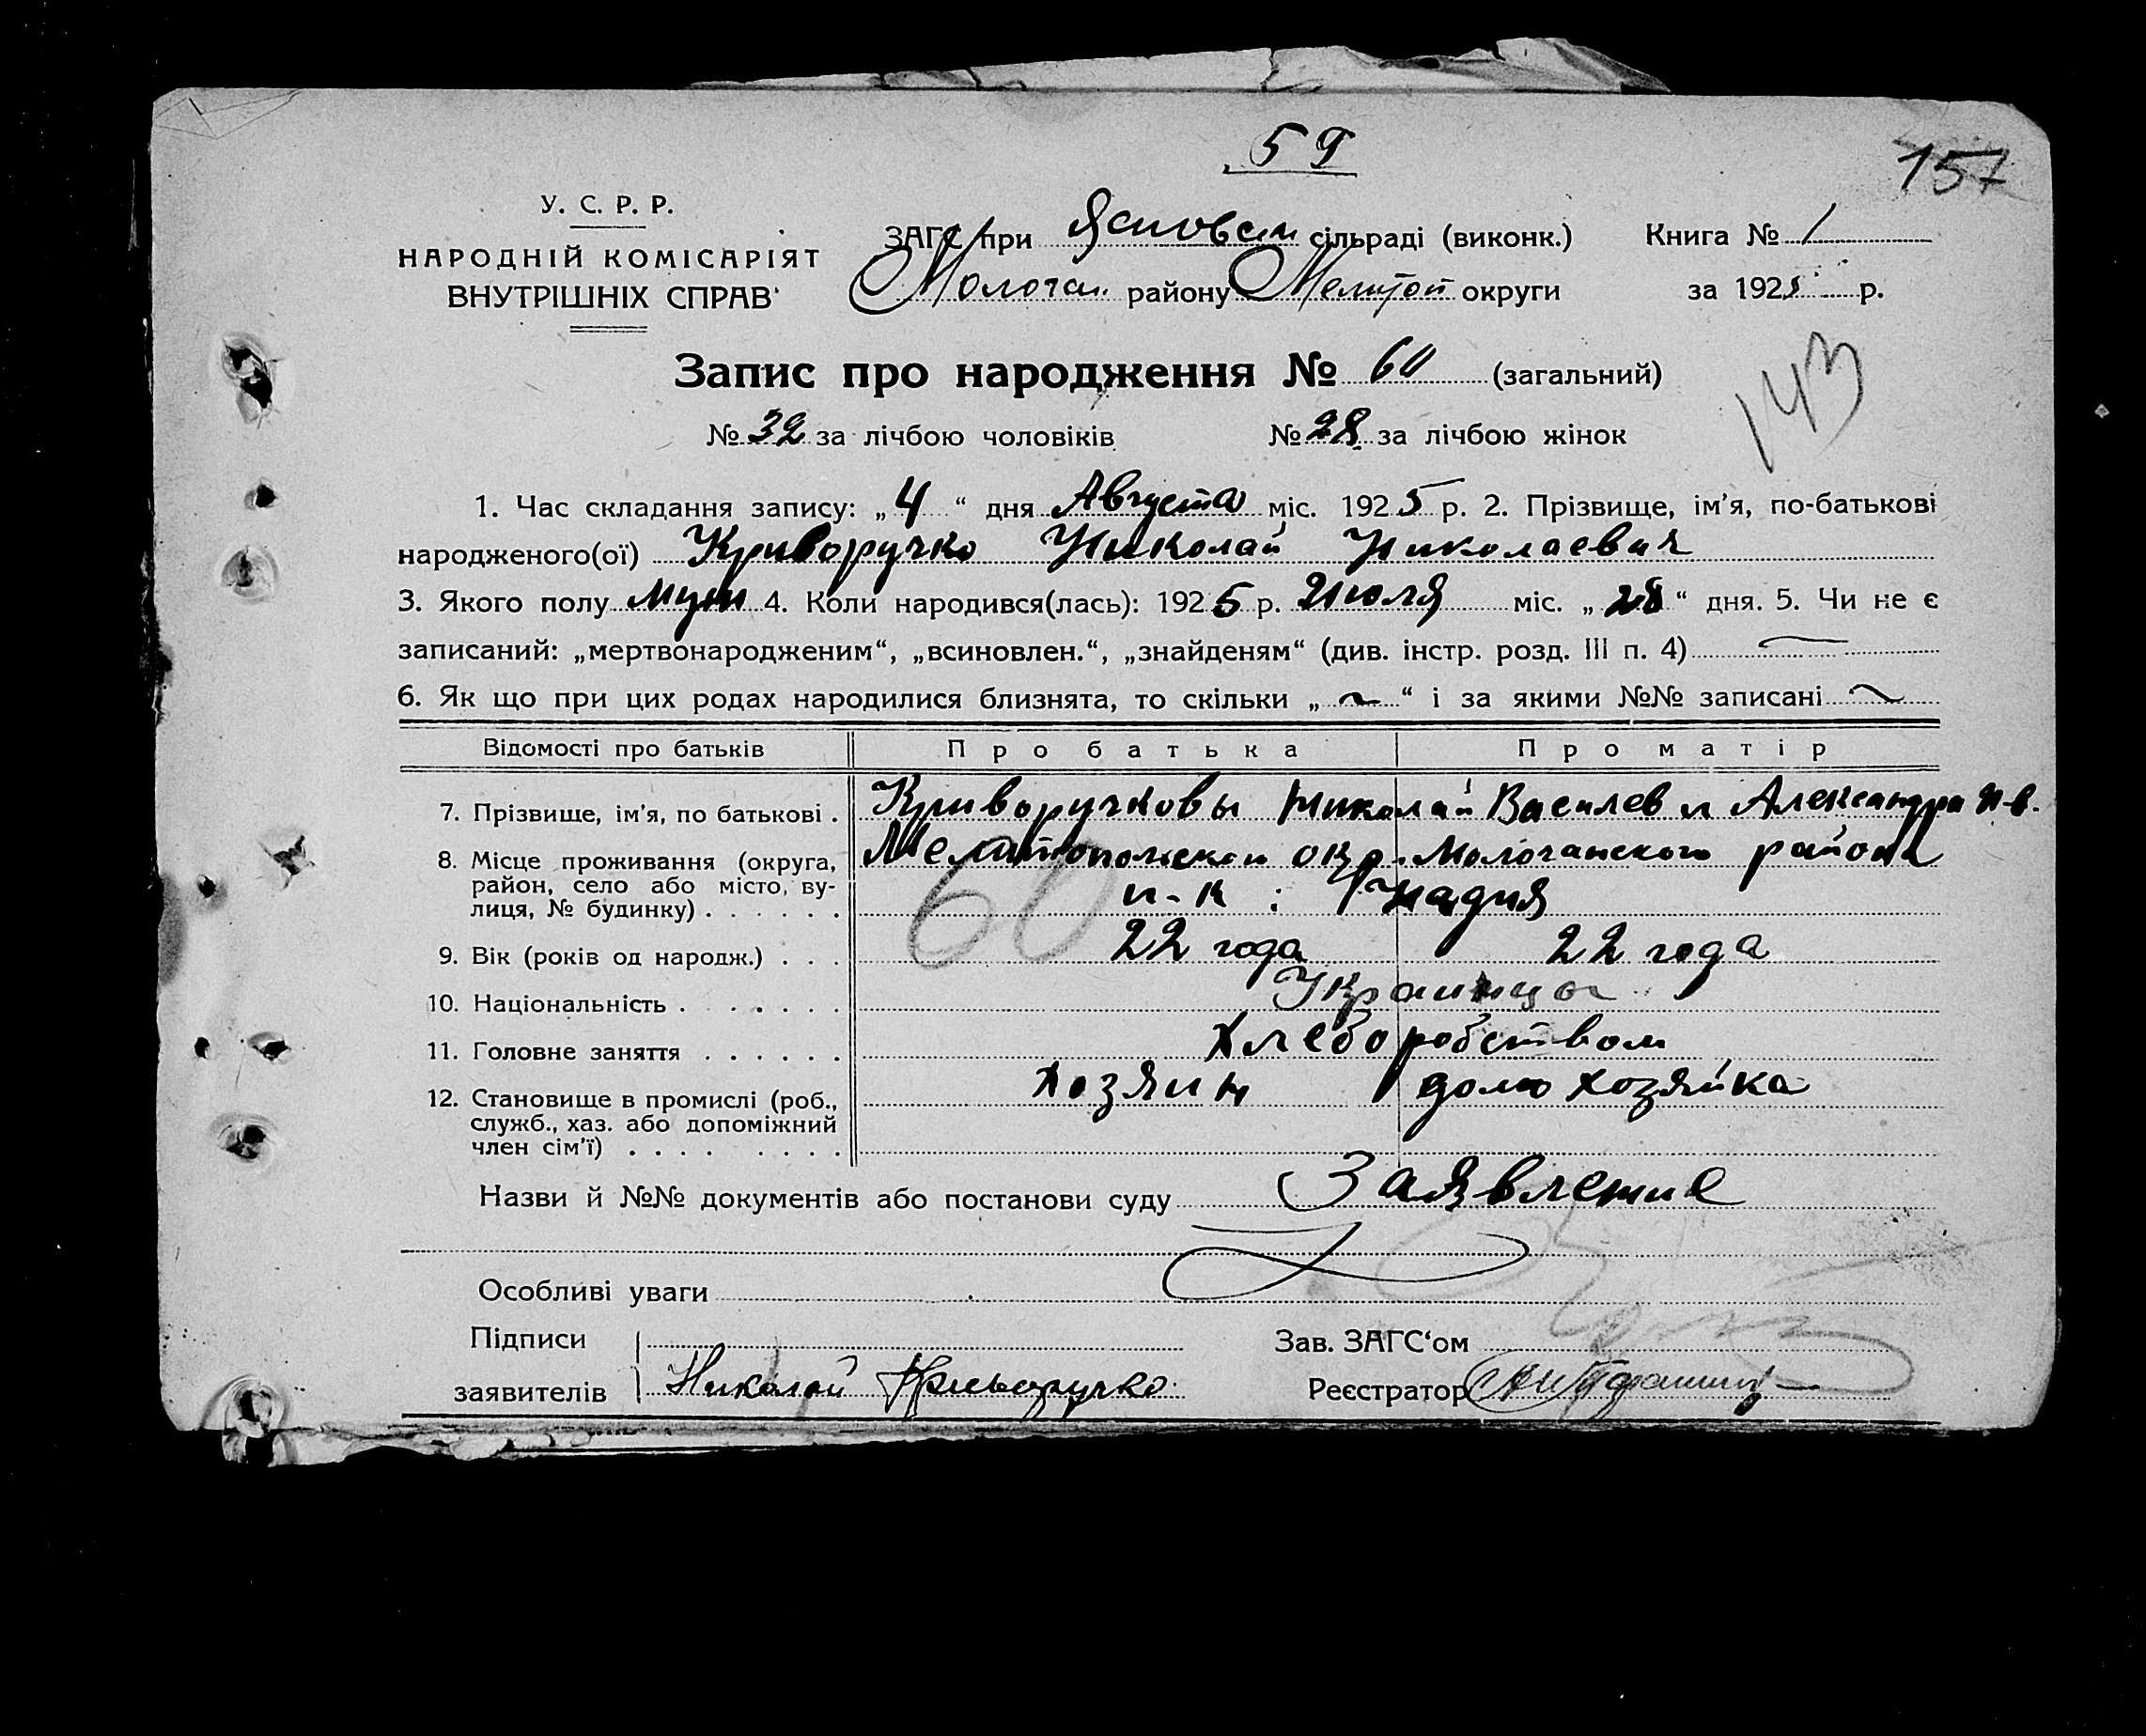 59
157
У. С. Р. Р.
НАРОДНІЙ КОМІСАРІЯТ
ВНУТРІШНІХ СПРАВ
ЗАГС при сільраді (виконк.) Книга № 1
Молочан. району Мелитоп округи за 1925 р.
Запис про народження № 60 (загальний)
143
№ 32 за лічбою чоловіків № 28 за лічбою жінок
1. Час складання запису: „4“ дня Августа міс. 1925 р. 2. Прізвище, ім'я, по-батькові
народженого(ої) Криворучко Николай Николаевич
3. Якого полу муж 4. Коли народився(лась): 1925 р. Июля міс. „28“ дня. 5. Чи не є
записаний: „мертвонародженим“, „всиновлен.“, „знайденям“ (див. інстр. розд. III п. 4)
6. Як що при цих родах народилися близнята, то скільки „ “ і за якими №№ записані
Відомості про батьків Про батька Про матір
7. Прізвище, ім'я, по батькові . Криворучковы Николай Василев и Александра
8. Місце проживання (округа, Мелитопольской окр. Молочанского района
район, село або місто, ву-
лиця, № будинку) . . . . . . п-к :
60
9. Вік (років од народж.) . . . 22 года 22 года
10. Національність . . . . . . Украинцы
11. Головне заняття . . . . . . Хлеборобством
12. Становище в промислі (роб., хозяин домохозяйка
служб., хаз. або допоміжний
член сім'ї) . . . . . . . .
Назви й №№ документів або постанови суду Заявление
Особливі уваги
Підписи Зав. ЗАГС'ом
заявителів Николай Криворучко Реєстратор